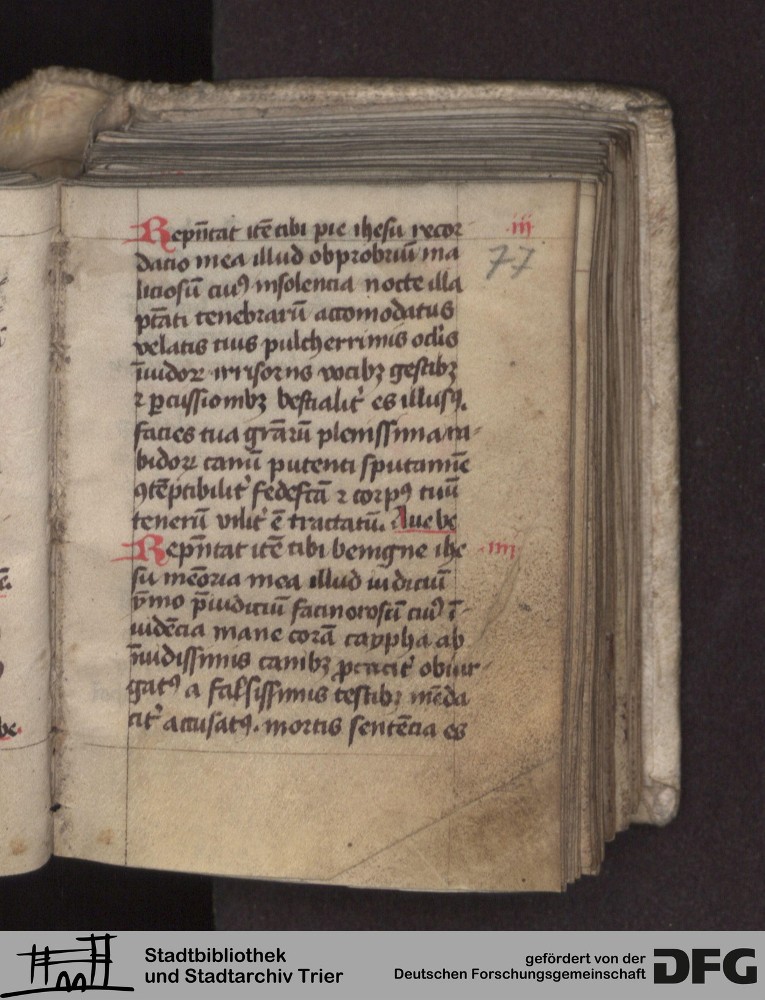 Rep̄ntat itē tibi pie ihesu recor
iii
77
datio mea illud obprobriū ma
liciosū cuiꝰ insolencia nocte illa
ptāti tenebrarū accomodatus
velatis tuis pulcherrimis oclis
īuidoꝝ irrisorns vocibꝫ gestibꝫ
⁊ ꝑcussionibꝫ bestialit᷑ es illusꝰ.
facies tua grārū plenissima ra-
bidoꝝ canū putenti sputamīe
ꝯtēptibilit᷑ fedestā ⁊ corpꝰ tuū
tenerū vilit᷑ ē tractatū. Aue be
Rep̄ntat itē tibi benigne ihe
iiii
su memōria mea illud iudiciū
ymo p̄iudiciū facinorosū cuiꝰ ī-
uidēcia mane corā caypha ab
īuidissimis canibꝫ ꝓcacit᷑ obiur
gatꝰ a falsissimis testibꝫ mēda
cit᷑ accusatꝰ. mortis sentēcia es
be.
Stadtbibliothek
und Stadtarchiv Trier
gefördert von der
Deutschen Forschungsgemeinschaft
DFG